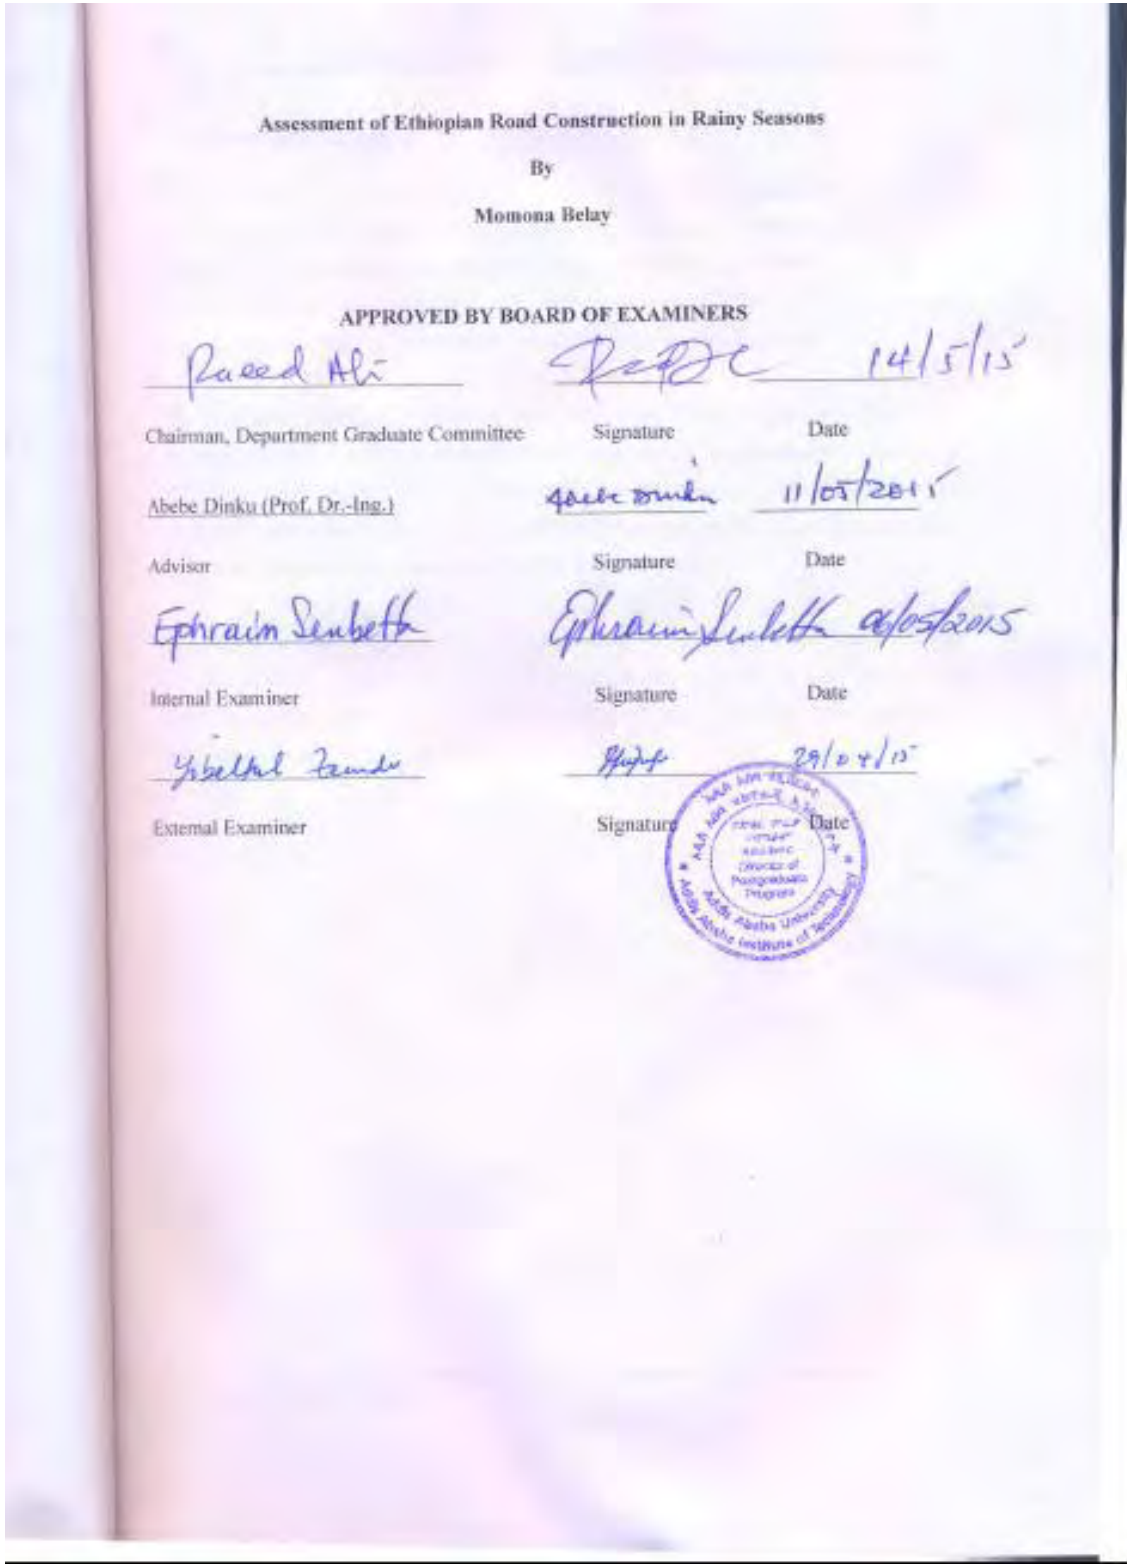 Assessment of Ethiopian Road Construction in Rainy Seasons
By
Momona Belay
APPROVED BY BOARD OF EXAMINERS
Raeed Ali 14/5/15
Chairman, Department Graduate Committee Signature Date
Abebe Dinku (Prof. Dr.-Ing.) Abebe Dinku 11/05/2015
Advisor Signature Date
Ephraim Senbetta Ephraim Senbetta 06/05/2015
Internal Examiner Signature Date
29/04/15
External Examiner Signature Date
Director of
Postgraduate
Program
Addis Ababa University
Addis Ababa Institute of Technology